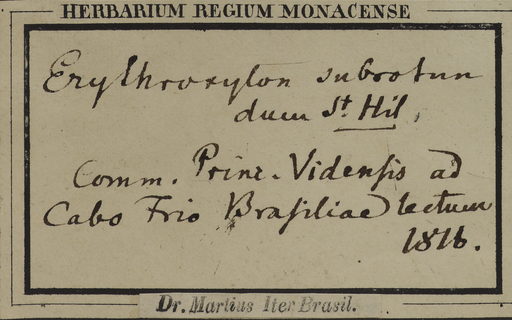 HERBARIUM REGIUM MONACENSE
Erythroxylon subrotun
dum St Hil,
Comm. Princ. Vidensis ad
Cabo Frio Brasiliae lectum
1816.
Dr. Martius Iter Brasil.